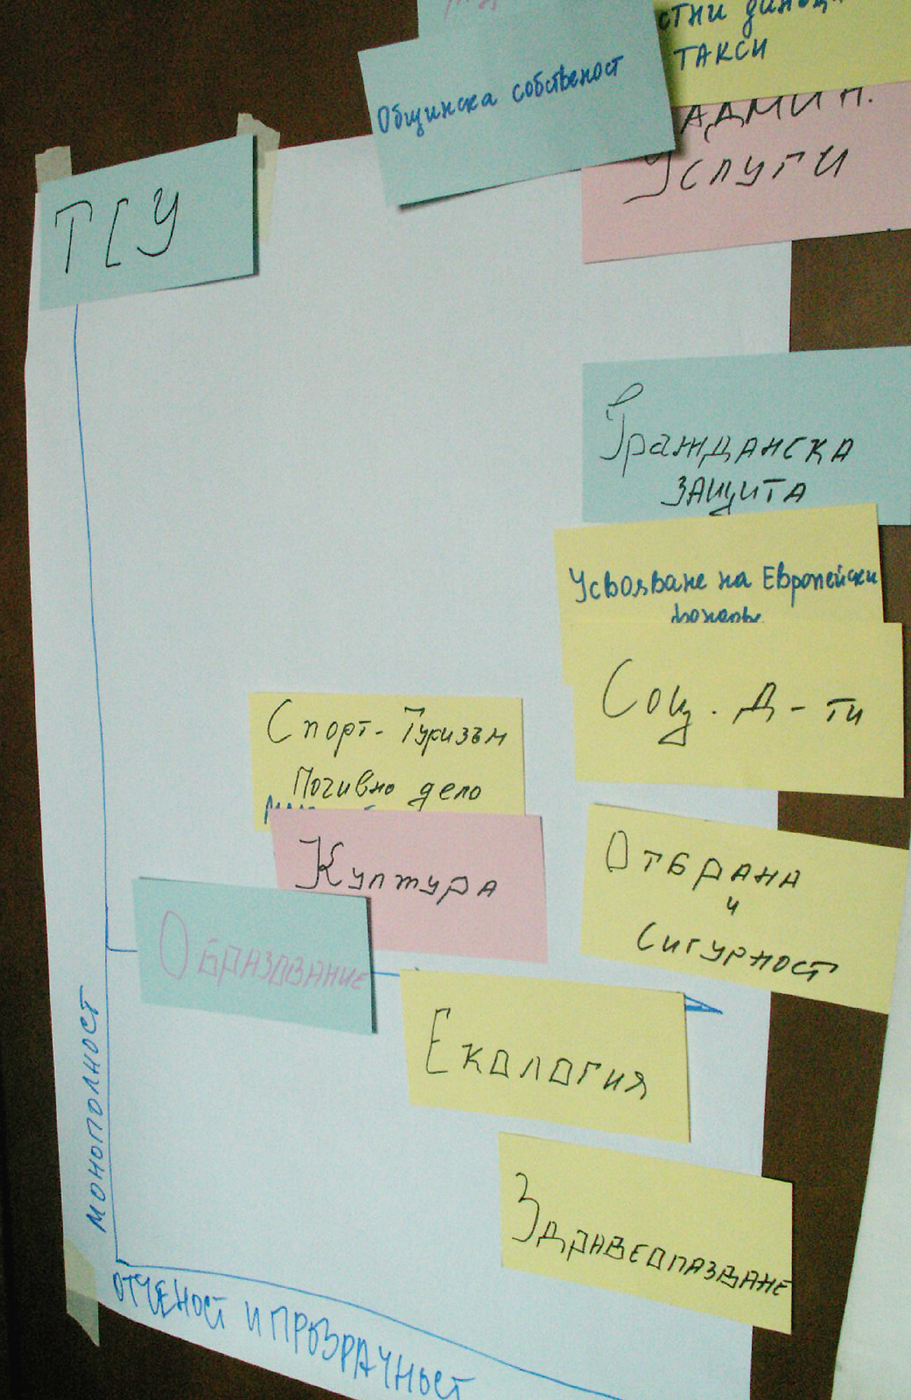 ТАКСИ
Общинска собственост
АДМИН.
Услуги
ТСУ
Гражданска
защита
Усвояване на Европейски
Соц. Д-ти
Спорт-Туризъм
Почивно дело
Култура
Отбрана
и
Сигурност
Образование
Екология
Здравеопазване
МОНОПОЛНОСТ
ОТЧЕНОСТ И ПРОЗРАЧНЬОСТ